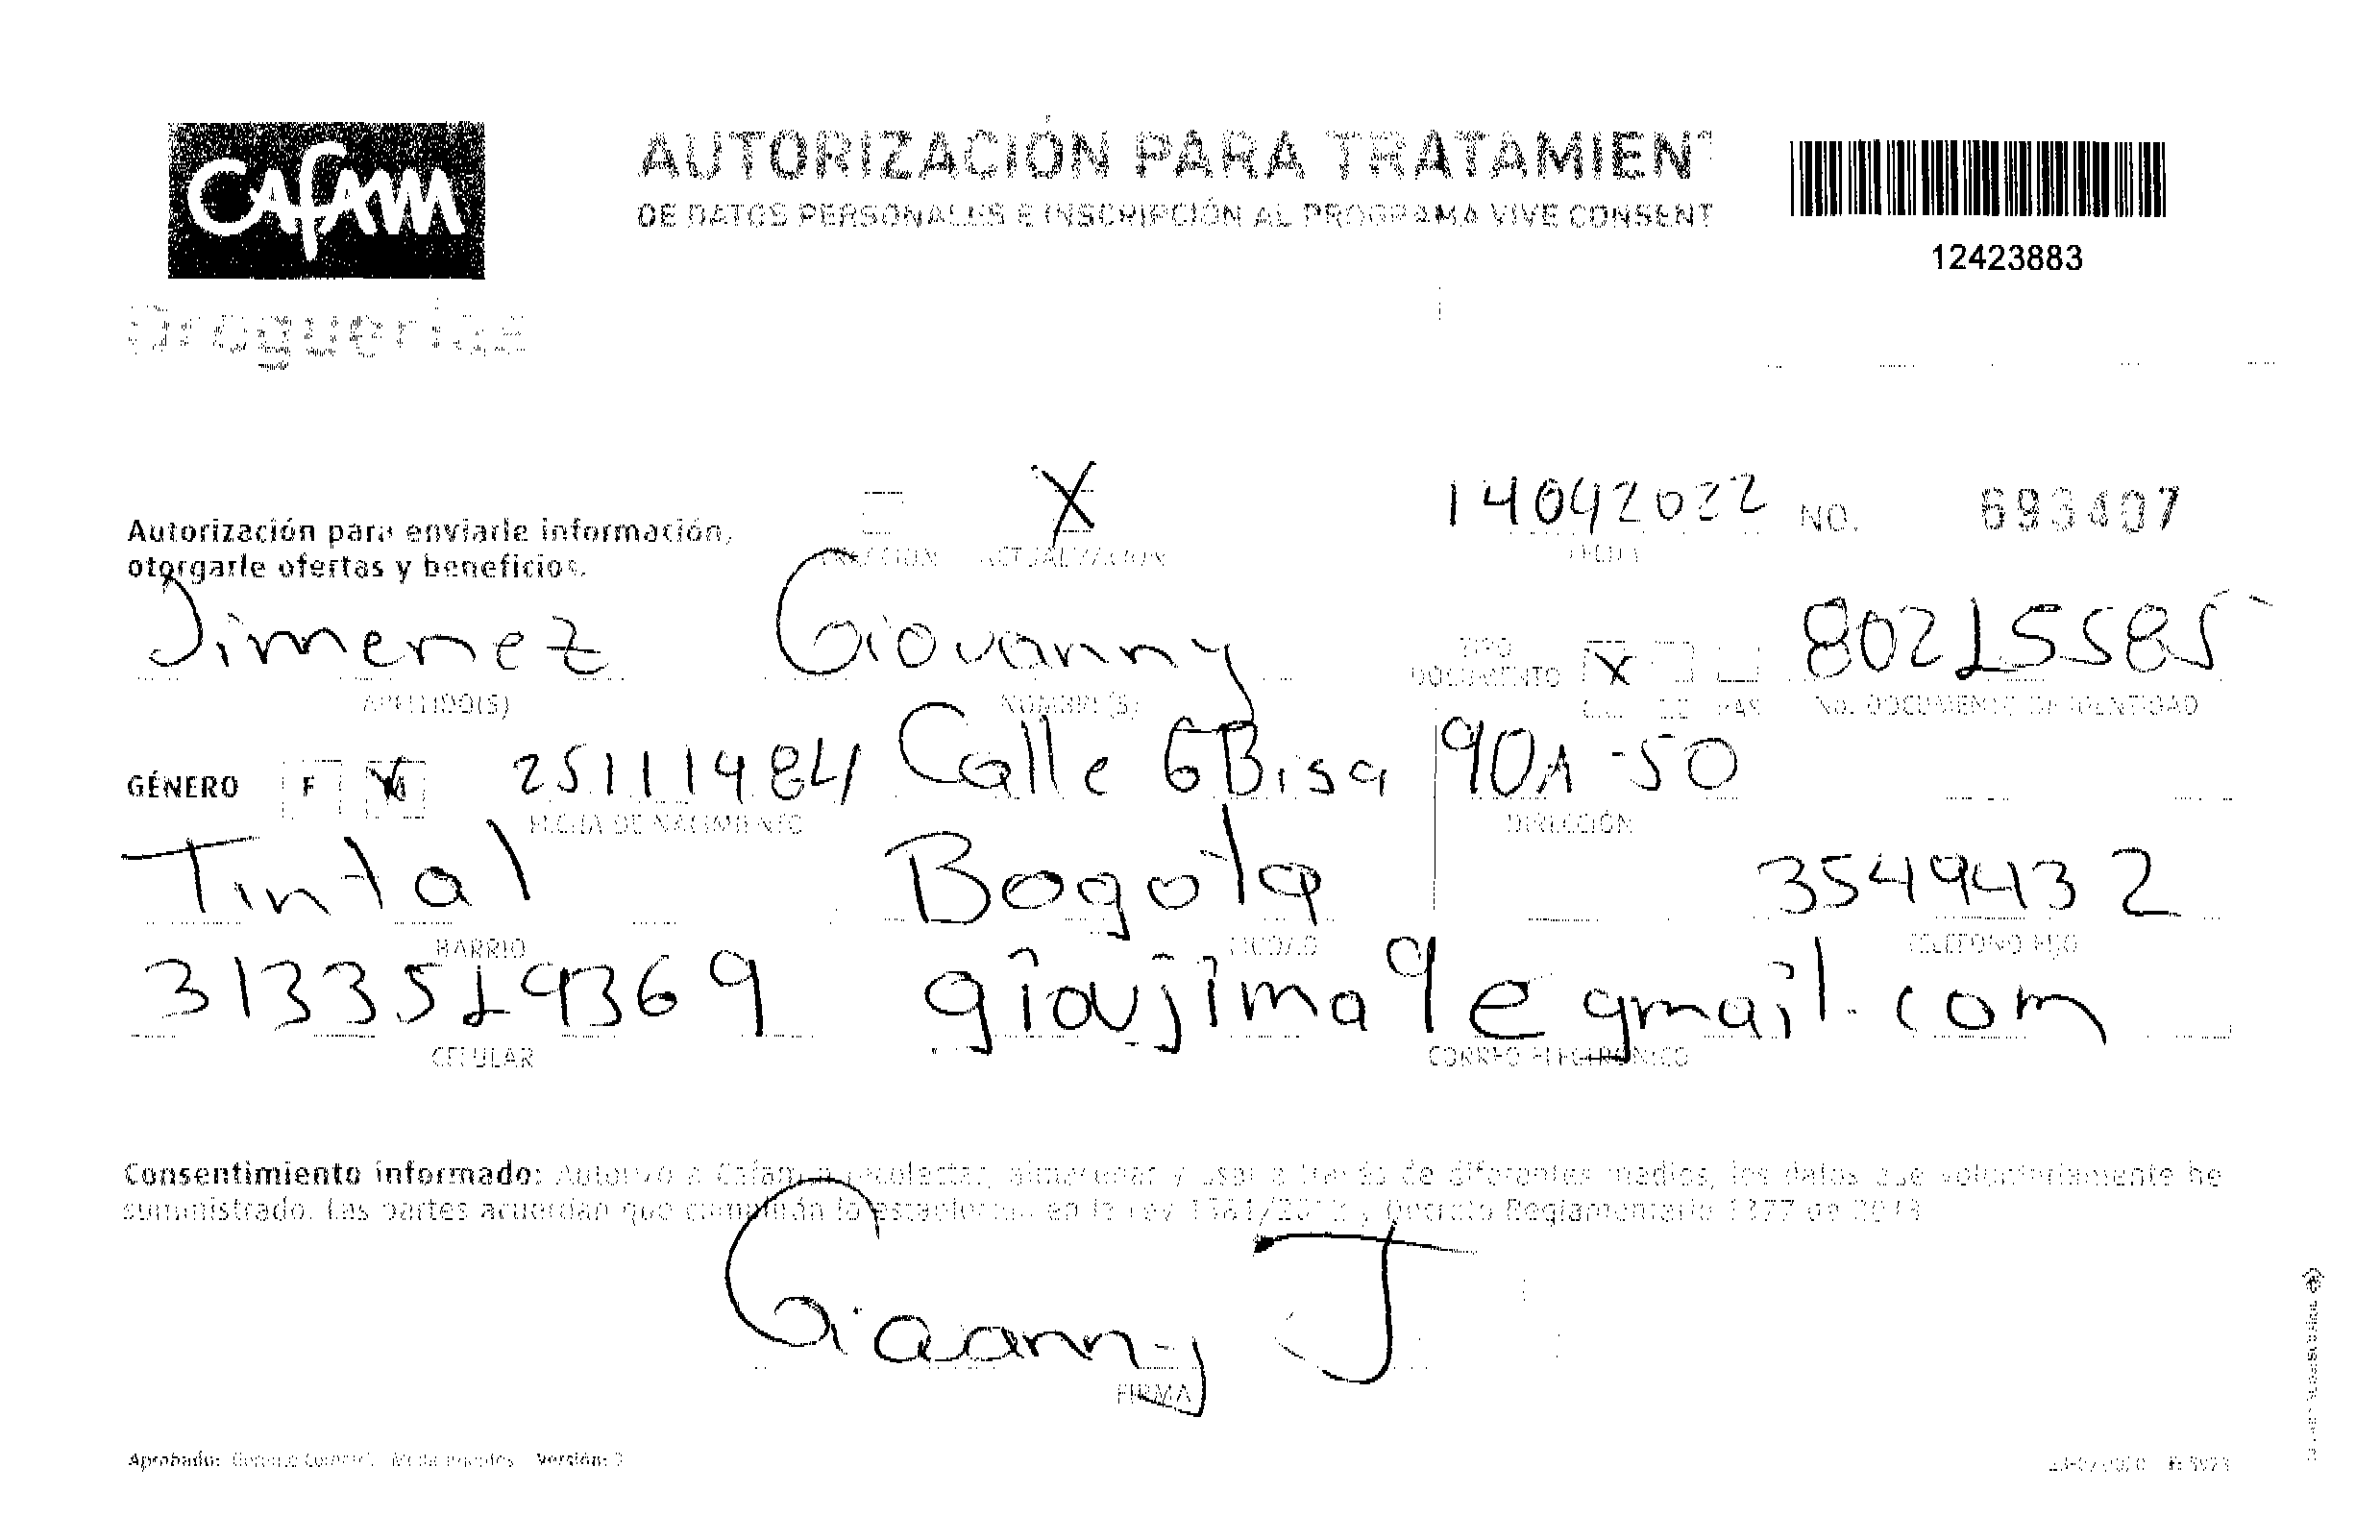 Cafam
AUTORIZACIÓN PARA TRATAMIENT
DE DATOS PERSONALES E INSCRIPCIÓN AL PROGRAMA VIVE CONSENT
12423883
Droguerías
Autorización para enviarle información,
otorgarle ofertas y beneficios.
X
ACTUALIZACIÓN
14042022
FECHA
NO. 693407
Jimenez
APELLIDO(S)
Giovanny
NOMBRE(S)
TIPO
DOCUMENTO
X
C.C. C.E. PAS
80215585
NO. DOCUMENTO DE IDENTIDAD
GÉNERO F X M
25111984
FECHA DE NACIMIENTO
Calle 6Bisa 90A-50
DIRECCIÓN
Tintal
BARRIO
Bogota
CIUDAD
3549432
TELÉFONO FIJO
3133519369
CELULAR
giovjima9@gmail.com
CORREO ELECTRÓNICO
Consentimiento informado: Autorizo a Cafam a recolectar, almacenar y usar a través de diferentes medios, los datos que voluntariamente he
suministrado. Las partes acuerdan que cumplirán lo establecido en la Ley 1581/2012 y Decreto Reglamentario 1377 de 2013
Giovanny J
FIRMA
Aprobado: Versión: 3